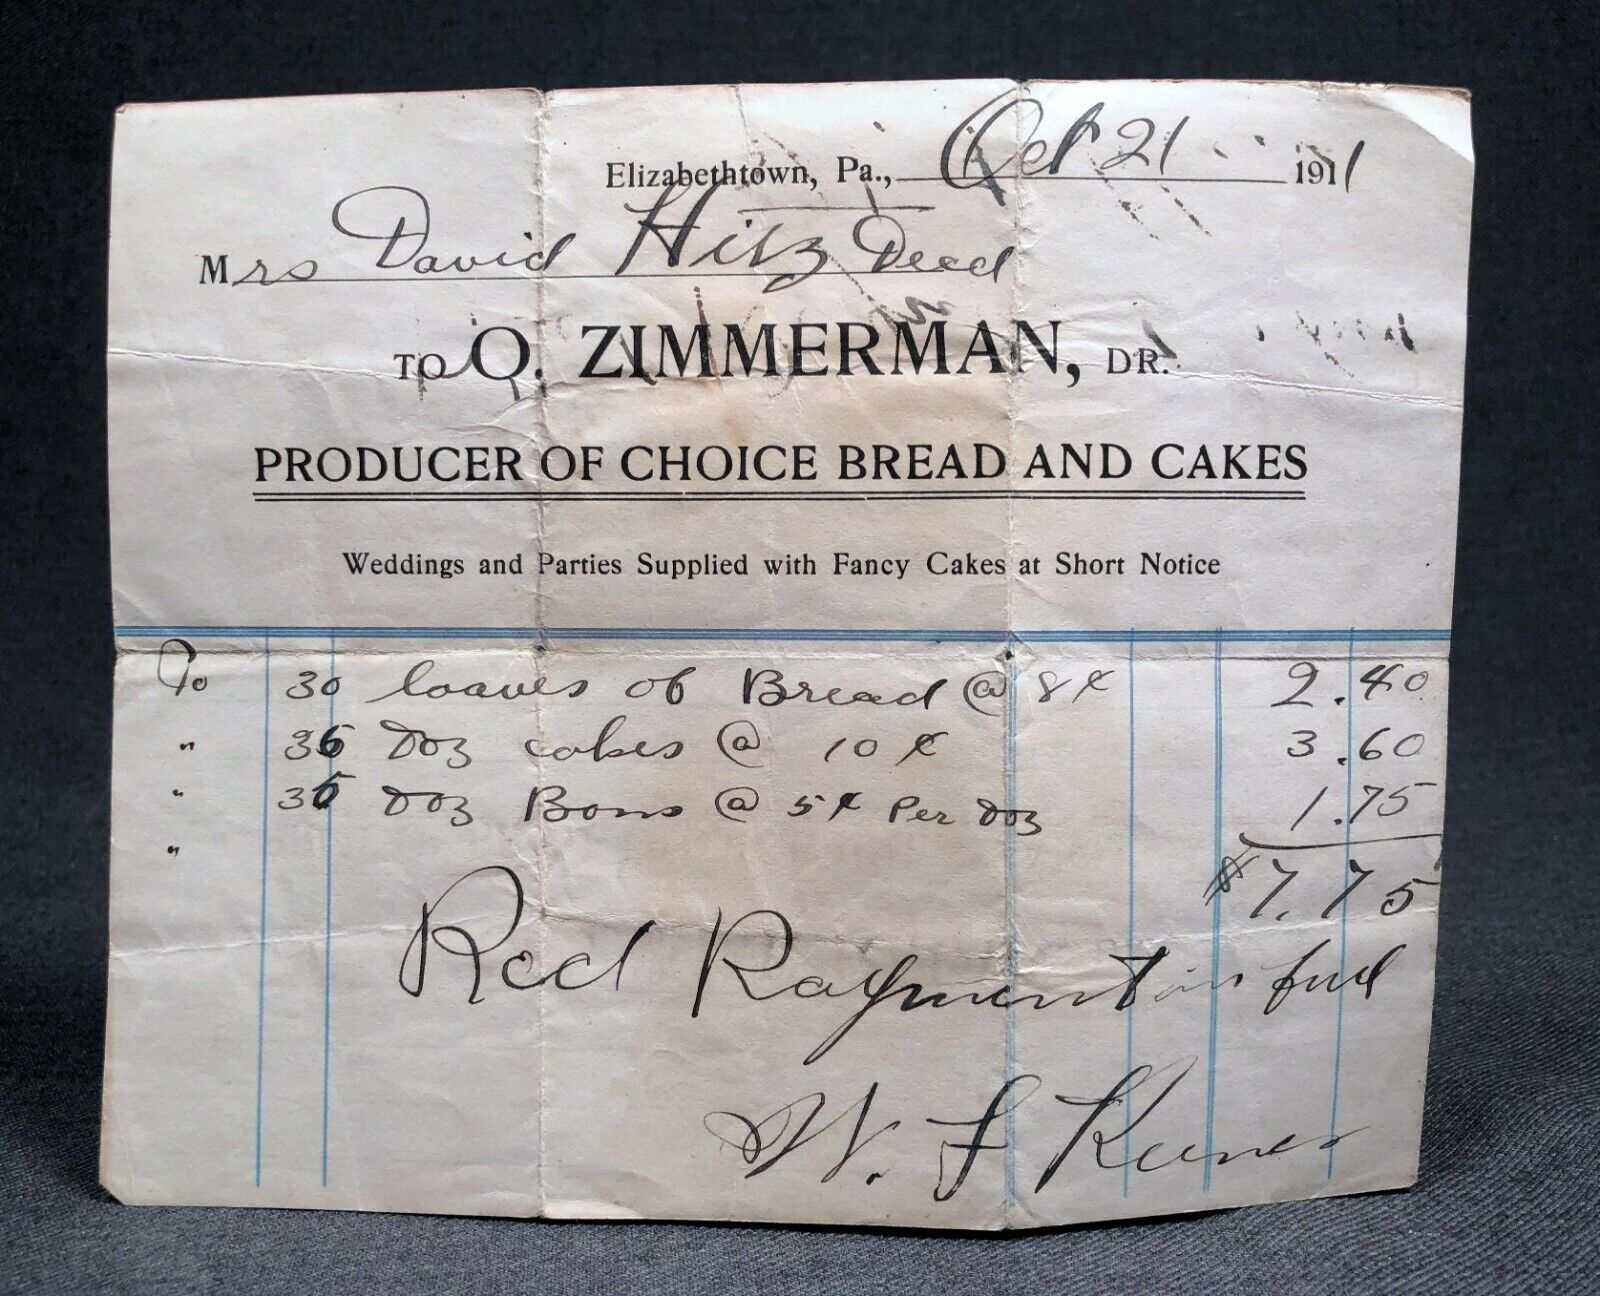 Elizabethtown, Pa., Oct 21 1911
Mrs David Hitz Decd
TO O. ZIMMERMAN, DR.
PRODUCER OF CHOICE BREAD AND CAKES
Weddings and Parties Supplied with Fancy Cakes at Short Notice
To 30 loaves of Bread @ 8¢ 2.40
" 36 Doz cakes @ 10¢ 3.60
" 35 Doz Bons @ 5¢ Per Doz 1.75
"
$7.75
Recd Payment in full
W. F Keener